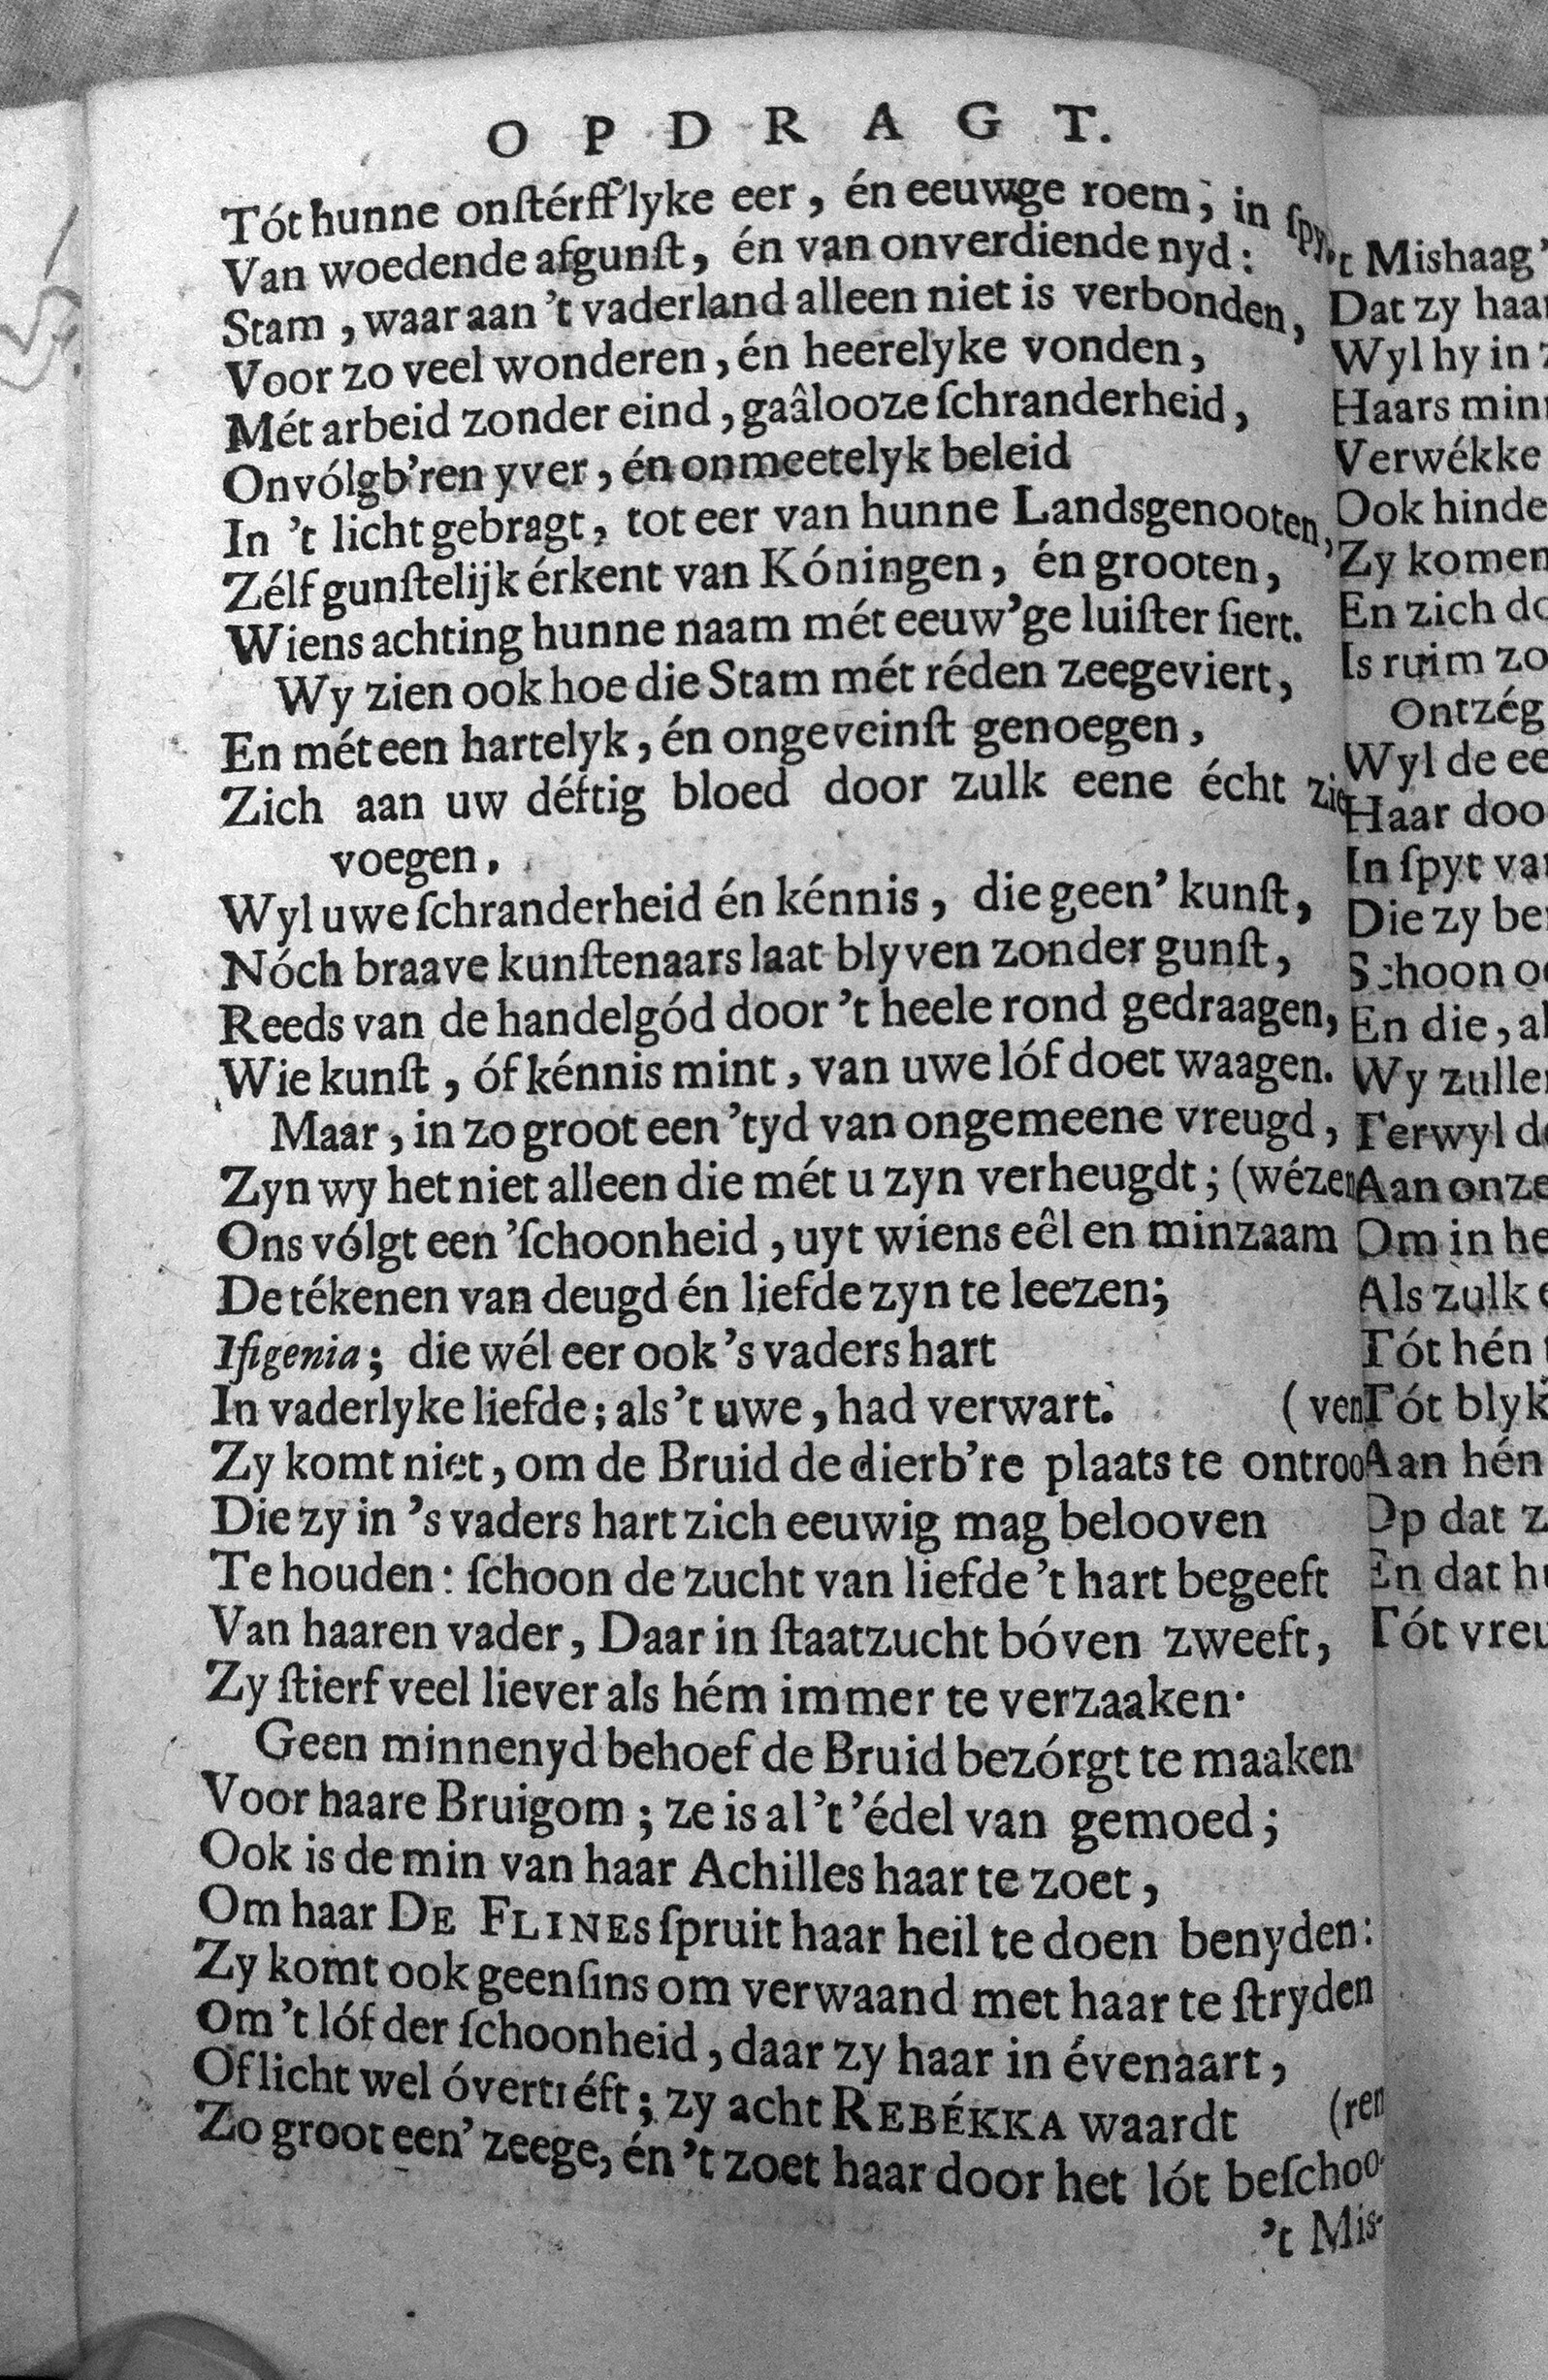 OPDRAGT.
Tót hunne onſtérff'lyke eer, én eeuwge roem, in ſpy
Van woedende afgunſt, én van onverdiende nyd:
Stam, waar aan 't vaderland alleen niet is verbonden,
Voor zo veel wonderen, én heerelyke vonden,
Mét arbeid zonder eind, gaâlooze ſchranderheid,
Onvólgb'ren yver, én onmeetelyk beleid
In 't licht gebragt, tot eer van hunne Landsgenooten,
Zélf gunſtelijk érkent van Kóningen, én grooten,
Wiens achting hunne naam mét eeuw'ge luiſter ſiert.
Wy zien ook hoe die Stam mét réden zeegeviert,
En mét een hartelyk, én ongeveinſt genoegen,
Zich aan uw déftig bloed door zulk eene écht zie
voegen,
Wyl uwe ſchranderheid én kénnis, die geen' kunſt,
Nóch braave kunſtenaars laat blyven zonder gunſt,
Reeds van de handelgód door 't heele rond gedraagen,
Wie kunſt, óf kénnis mint, van uwe lóf doet waagen.
Maar, in zo groot een 'tyd van ongemeene vreugd,
Zyn wy het niet alleen die mét u zyn verheugdt; (wézen
Ons vólgt een 'ſchoonheid, uyt wiens eêl en minzaam
De tékenen van deugd én liefde zyn te leezen;
Ifigenia; die wél eer ook 's vaders hart
In vaderlyke liefde; als 't uwe, had verwart. (ven
Zy komt niet, om de Bruid de dierb're plaats te ontroo
Die zy in 's vaders hart zich eeuwig mag belooven
Te houden: ſchoon de zucht van liefde 't hart begeeft
Van haaren vader, Daar in ſtaatzucht bóven zweeft,
Zy ſtierf veel liever als hém immer te verzaaken.
Geen minnenyd behoef de Bruid bezórgt te maaken
Voor haare Bruigom; ze is al 't 'édel van gemoed;
Ook is de min van haar Achilles haar te zoet,
Om haar DE FLINES ſpruit haar heil te doen benyden:
Zy komt ook geenſins om verwaand met haar te ſtryden
Om 't lóf der ſchoonheid, daar zy haar in évenaart,
Of licht wel óvertréft; zy acht REBÉKKA waardt (ren
Zo groot een' zeege, én 't zoet haar door het lót beſchoo-
't Mis-
't Mishaag'
Dat zy haar
Wyl hy in
Haars min
Verwékke
Ook hinde
Zy komen
En zich do
Is ruim zo
Ontzég
Wyl de ee
Haar doo
In ſpyt va
Die zy be
Schoon o
En die, al
Wy zulle
Terwyl d
Aan onze
Om in he
Als zulk
Tót hén
Tót blyk
Aan hén
Op dat z
En dat h
Tót vreu